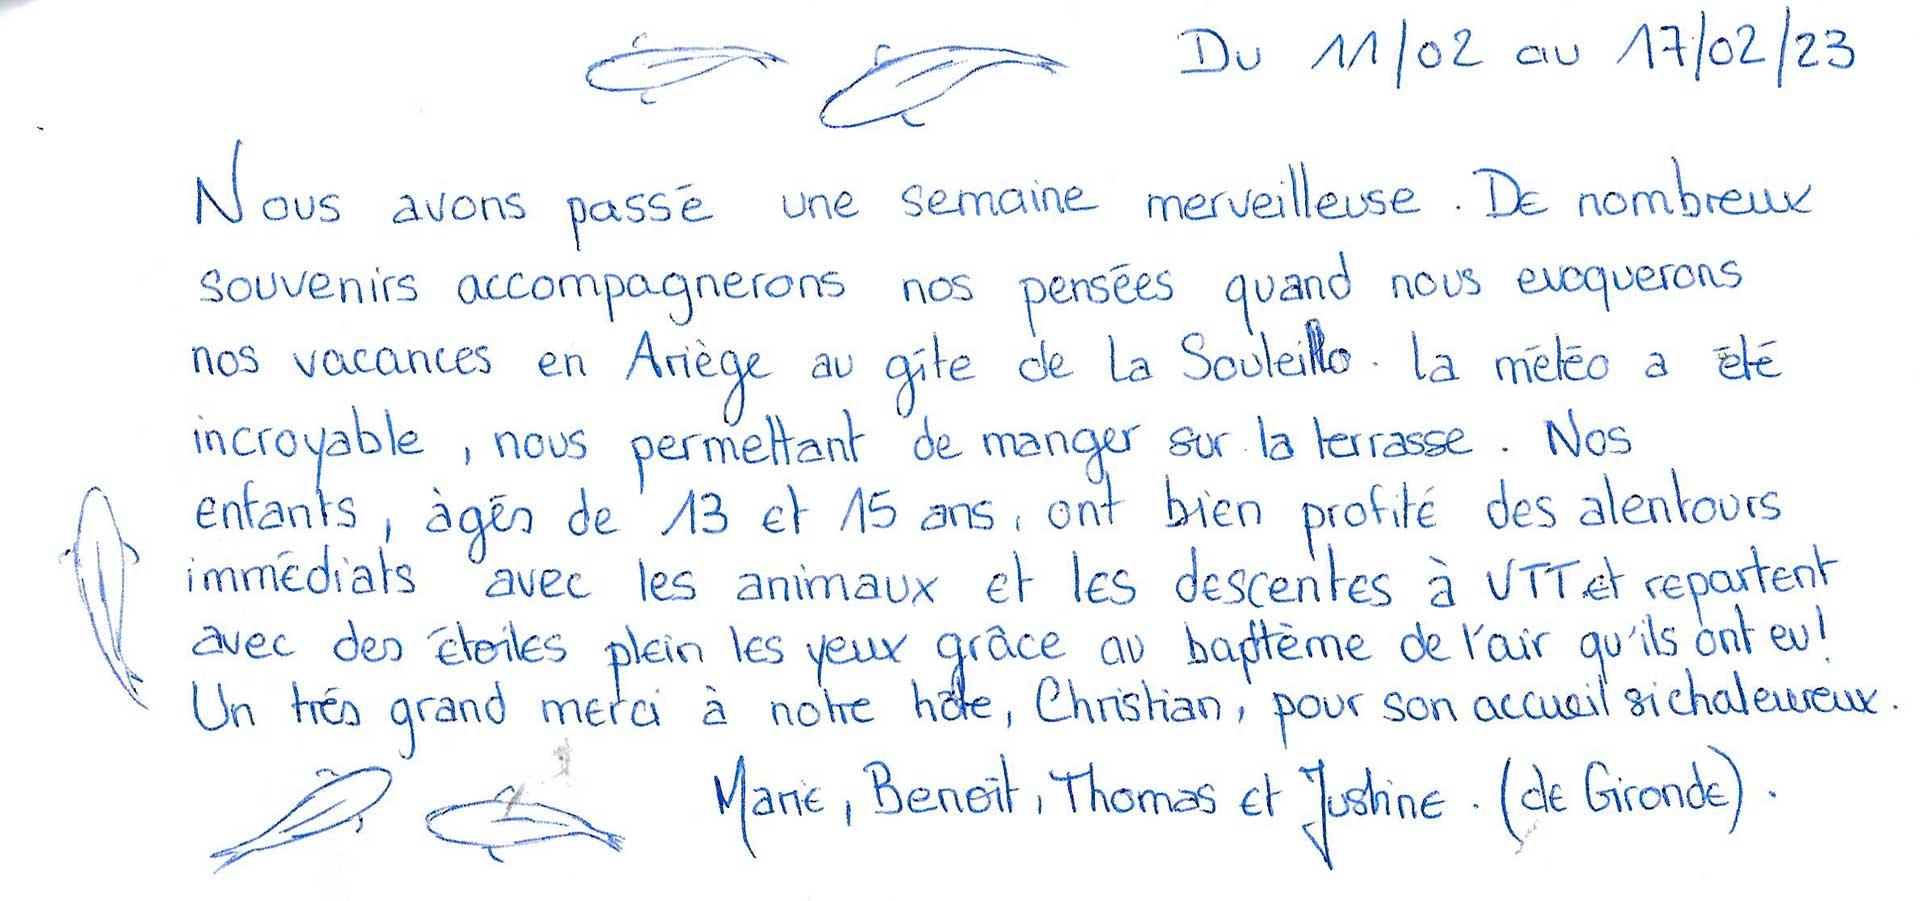 Du 11/02 au 17/02/23
Nous avons passé une semaine merveilleuse. De nombreux
souvenirs accompagnerons nos pensées quand nous evoquerons
nos vacances en Ariège au gîte de La Souleillo. La météo a été
incroyable, nous permettant de manger sur la terrasse. Nos
enfants, àgés de 13 et 15 ans, ont bien profité des alentours
immédiats avec les animaux et les descentes à VTT et repartent
avec des étoiles plein les yeux grâce au baptème de l'air qu'ils ont eu!
Un très grand merci à notre hôte, Christian, pour son accueil si chaleureux.
Marie, Benoît, Thomas et Justine. (de Gironde).